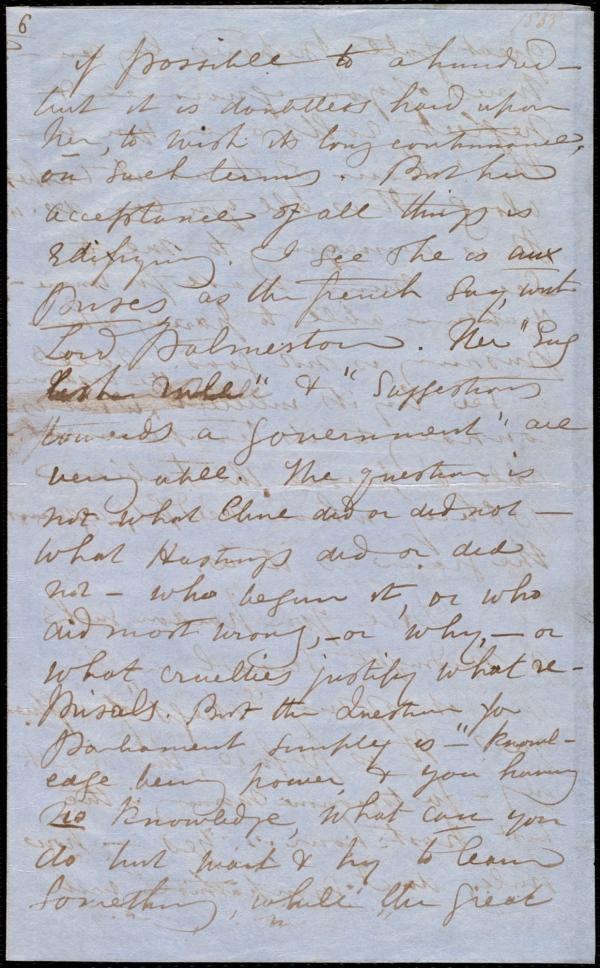 6
if possible to a hundred –
but it is doubtless hard upon
her, to wish its long continuance,
on such terms. But her
acceptance of all things is
edifying. I see she is aux
Prises as the french say, with
Lord Palmerston. Her "Eng
lish rule" & "Suggestions
towards a Government" are
very able. The question is
not what Clive did or did not –
what Hastings did or did
not – who begun it, or who
did most wrong, – or why, – or
what cruelties justify what re-
prisals. But the Question for
Parliament simply is – "Knowl-
edge being power, & you having
no Knowledge, what can you
do but wait & try to learn
something, while the great